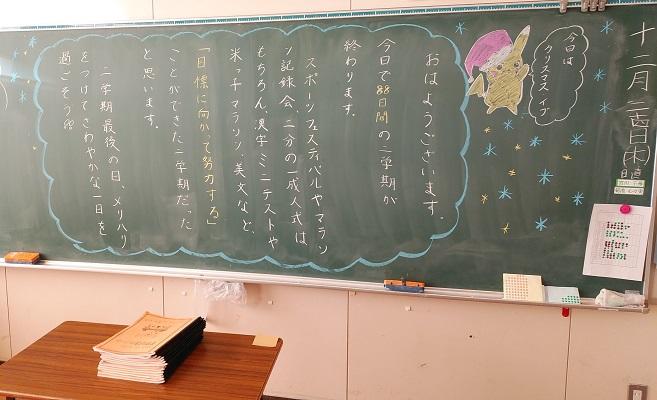 十二月二十四日(木)
日直
今日は
クリスマスイブ
おはようございます。
今日で88日間の二学期が
終わります。
スポーツフェスティバルやマラソ
ン記録会、二分の一成人式は
もちろん、漢字・ミニテストや
米っ子マラソン、美文など、
「目標に向かって努力する」
ことができた二学期だった
と思います。
二学期最後の日、メリハリ
をつけてさわやかな一日を
過ごそう